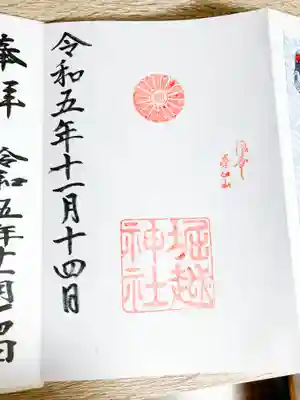 堀越
神社
令和五年十一月十四日
奉拝
令和五年十一月十四日